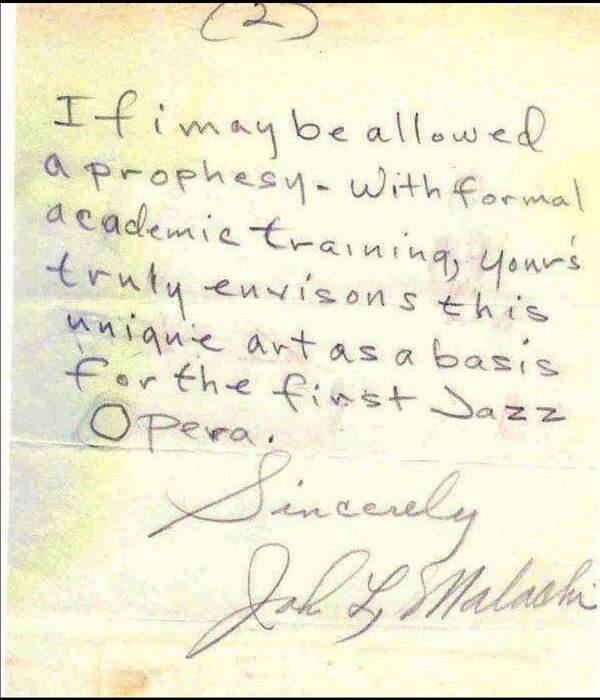 (2)
If i may be allowed
a prophesy - With formal
academic training, your's
truly envisons this
unique art as a basis
for the first Jazz
Opera.
Sincerely
John L, Malachi